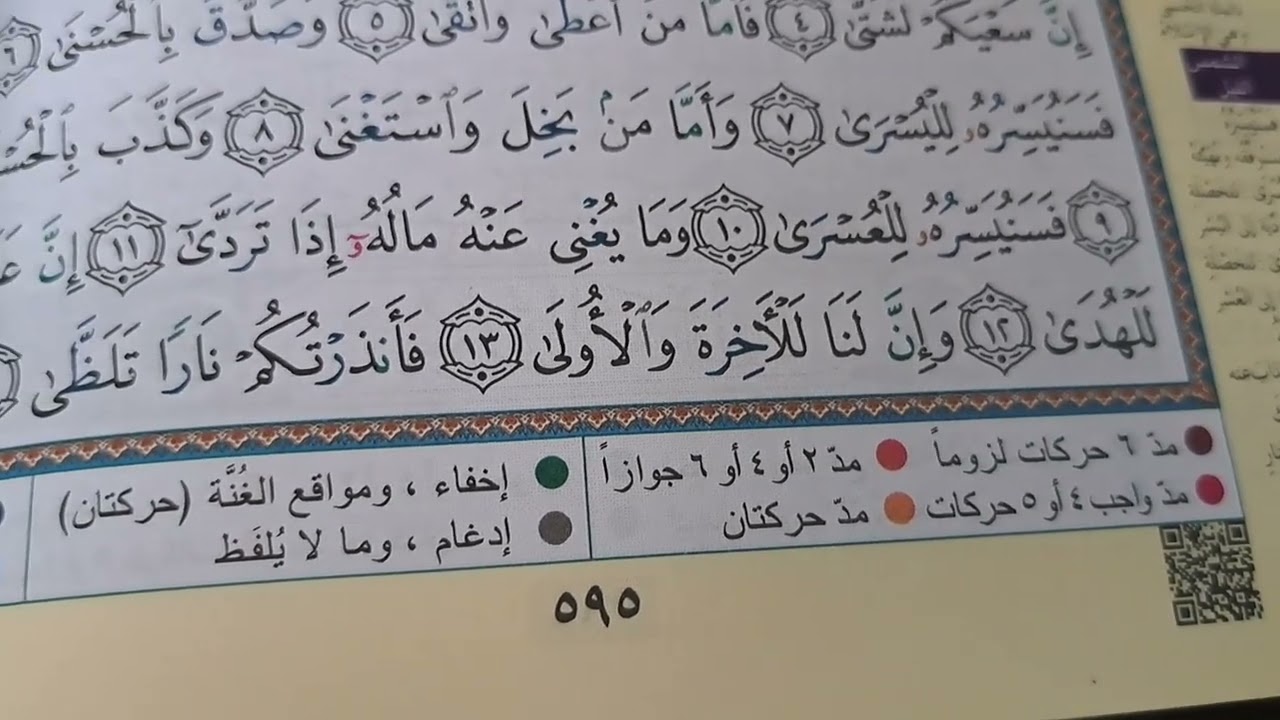 إِنَّ سَعْيَكُمْ لَشَتَّىٰ ٤ فَأَمَّا مَنْ أَعْطَىٰ وَاتَّقَىٰ ٥ وَصَدَّقَ بِالْحُسْنَىٰ ٦
فَسَنُيَسِّرُهُۥ لِلْيُسْرَىٰ ٧ وَأَمَّا مَنۢ بَخِلَ وَٱسْتَغْنَىٰ ٨ وَكَذَّبَ
٩ فَسَنُيَسِّرُهُۥ لِلْعُسْرَىٰ ١٠ وَمَا يُغْنِى عَنْهُ مَالُهُۥٓ إِذَا تَرَدَّىٰٓ ١١ إِنَّ
لَلْهُدَىٰ ١٢ وَإِنَّ لَنَا لَلْـَٔاخِرَةَ وَٱلْأُولَىٰ ١٣ فَأَنذَرْتُكُمْ نَارًا تَلَظَّىٰ
مدّ ٦ حركات لزوماً مدّ ٢ أو ٤ أو ٦ جوازاً إخفاء ، ومواقع الغُنَّة (حركتان)
مدّ واجب ٤ أو ٥ حركات مدّ حركتان إدغام ، وما لا يُلفَظ
٥٩٥